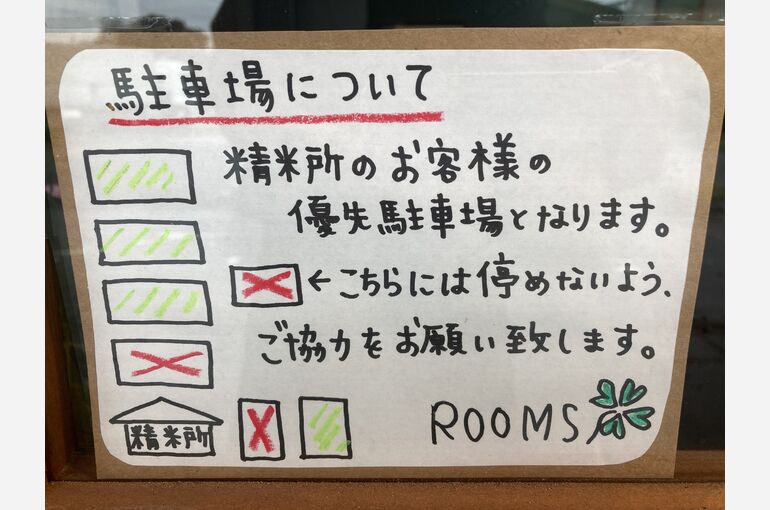 駐車場について
精米所のお客様の
優先駐車場となります。
←こちらには停めないよう、
ご協力をお願い致します。
精米所
ROOMS